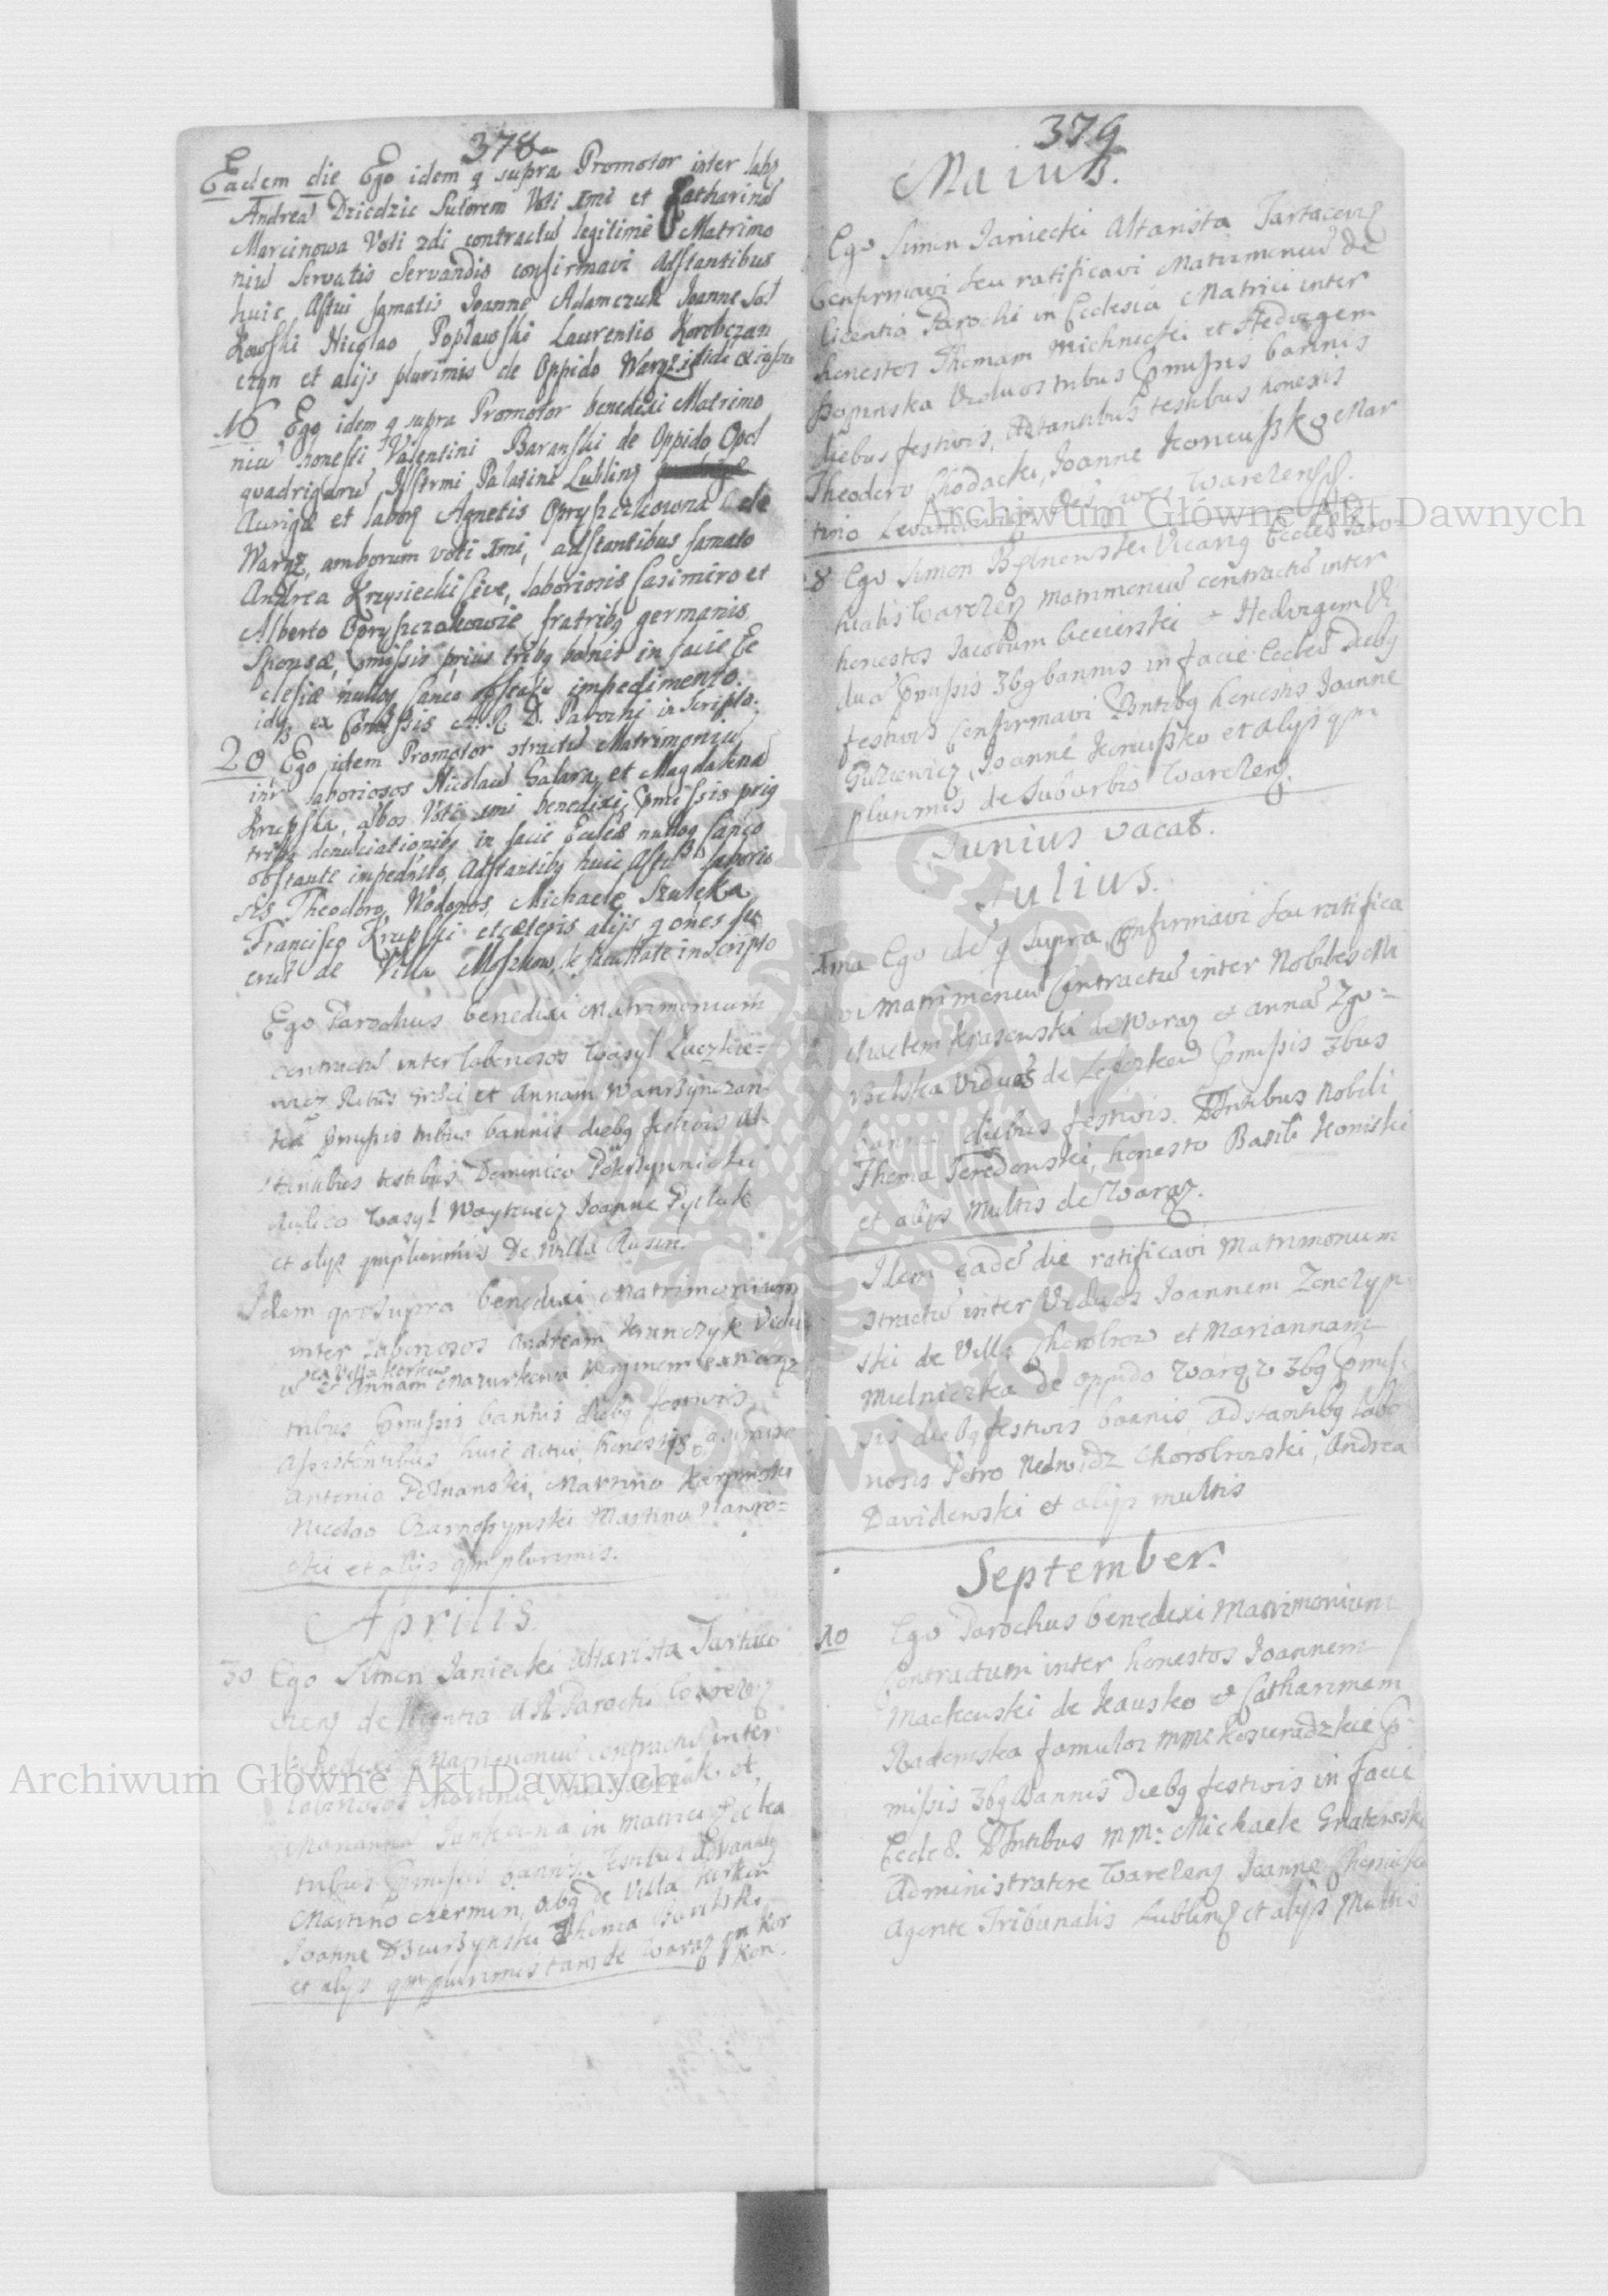 378
Eadem die Ego idem q supra Promotor inter labs
Andreā Dziedzic Sutorem Voti 1mi et Catharinā
Marcinowa Voti 2di contractū legitime Matrimo
niū Servatis Servandis confirmavi Adstantibus
huic Actui famatis Joanne Adamczuk Joanne Sos
kowski Nicolao Popławski Laurentio Korobczan
czyn et alijs plurimis de Oppido Waręż
16 Ego idem q supra Promotor benedixi Matrimo
niū honesti Valentini Barański de Oppido Opol
quadrigarū Palatini Lubling
Aurigæ et labors Agnetis Opryszczkowna de
Waręz, amborum voti 1mi, adstantibus famato
Andrea Krzysiecki sive, laboriosis Casimiro et
Alberto Opryszczakowie fratribq germanis
Sponsæ, pmissis prius tribq banis in facie Ec
clesiæ nulloq sanco obstante impedimento.
idq ex Comissis A. R. D. Parochi in Scripto.
20 Ego idem Promotor stractū Matrimoniū
intr laboriosos Nicolaū Salara et Magdalenā
Krupska, abos Voti 1mi benedixi, pmissis priq
tribq denuciationibq in facie Eccles nulloq sanco
obstante impedito, Adstantibq huic Actui laborio
sis Theodoro Wodopos, Michaele Szulcka
Francisco Krupski et cæteris alijs q ones fu
erut de Villa Moszkow, de facultate in Scripto
Ego Parochus benedixi Matrimonium
contractū inter laboriosos Wasyl Luczkie=
wicz Ritus et Annam Wawrzynczan
ka pmissis tribus bannis diebq festivis ad=
stantibus testibus Dominico
Aulico Wasyl Woytowicz Joanne Pytluk
et alijs qmplurimis De Villa Rusin.
Idem qui supra benedixi Matrimonium
inter laboriosos Andream Hrynczyk Vidu
ex Villa Horkow
ū et Annam Mazurkowa Virginem ex Waręz
tribus pmissis bannis diebq festivis
Assistentibus huic actui, honestis
Antonio Poznanski, Martino Karpinski
Nicolao Czarnoszynski Martino Nawro=
cki et alijs qm plurimis.
Aprilis
30 Ego Simon Janiecki Altarista Tartaco
viens de licentia A R Parochi Warezeq
benedixi Matrimoniū contractū inter
laboriosos Martinū et
Mariannā Junkowna in matrici Ecclea
tribus pmissis bannis Testibus adstantibq
Martino Czermin, abq de Villa Horkow
Joanne Dziurzynski Thoma
et alijs qm plurimis tam de Waręz qm Hor
kow.
379
Maius.
Ego Simon Janiecki Altarista Tartacovq
Confirmavi seu ratificavi Matrimoniū de
licentia Parochi in Ecclesia Matrici inter
honestos Thomam Michnicki et Hedvigem
viduos tribus pmissis bannis
diebus festivis, Adstantibus testibus honestis
Theodoro Chodacki, Joanne Koncuszko Mar
tino Lewandowski Warezensq.
8 Ego Simon Vicariq Eccles Paro
hialis Warezeq Matrimoniū contractū inter
honestos Jacobum Gceierski et Hedvigem
duā pmissis 3bq bannis in facie Eccles diebq
festivis confirmavi Pntibq honestis Joanne
Guziewicz, Joanne Koniuszko et alijs qm
plurimis de Suburbio Warezeq.
Junius vacat.
Julius.
1ma Ego idē q supra, Confirmavi seu ratifica
vi Matrimoniū Contractū inter Nobiles Mi
chaelem Krasowski de Waręz et Annā Zgo=
rzelska Viduos de Leszczkow pmissis 3bus
bannis diebus festivis. Pntibus Nobili
Thoma Teredowski, honesto Basili Honiski
et alijs multis de Waręz.
Idem eadē die ratificavi Matrimonium
stractū inter Viduos Joannem Zenczyn
ski de Villa Chorobrow et Mariannam
Mielniczka de oppido Waręz 3bq pmis=
sis diebq festivis bannis, adstantibq labo
riosis Petro Niedzwidz Chorobrowski, Andrea
Davidowski et alijs multis
September.
10 Ego Parochus benedixi Matrimonium
Contractum inter honestos Joannem
Mackowski de Hausko et Catharinam
Radomska famulos MM: Kosieradzkie p=
missis 3bq bannis Diebq festivis in facie
Eccles. Pntibus MM: Michaele Gnatowski
Administratore Warezeq Joanne
Agente Tribunalis Lublinq et alijs Multis
Archiwum Główne Akt Dawnych
Archiwum Główne Akt Dawnych
ARCHIWUM GŁÓWNE AKT DAWNYCH